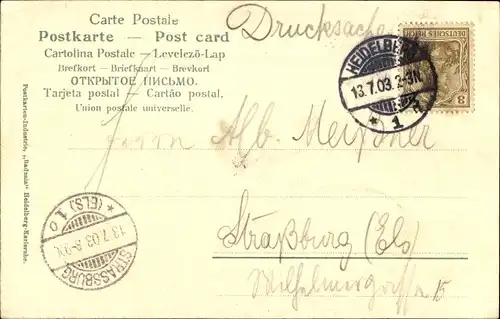 Carte Postale
Postkarte — Post card
Cartolina Postale — Levelező-Lap
Brefkort — Briefkaart — Brevkort
ОТКРЫТОЕ ПИСЬМО.
Tarjeta postal — Cartão postal.
Union postale universelle.
Drucksache
DEUTSCHES REICH
3
HEIDELBERG
13.7.03. 2-3N.
* 1
Herrn Alb. Meißner
Straßburg (Els)
Wilhelmergasse 15
STRASSBURG
13.7.03. 8-9N.
* (ELS.) 1 o
Postkarten-Industrie, „Badenia“ Heidelberg-Karlsruhe.